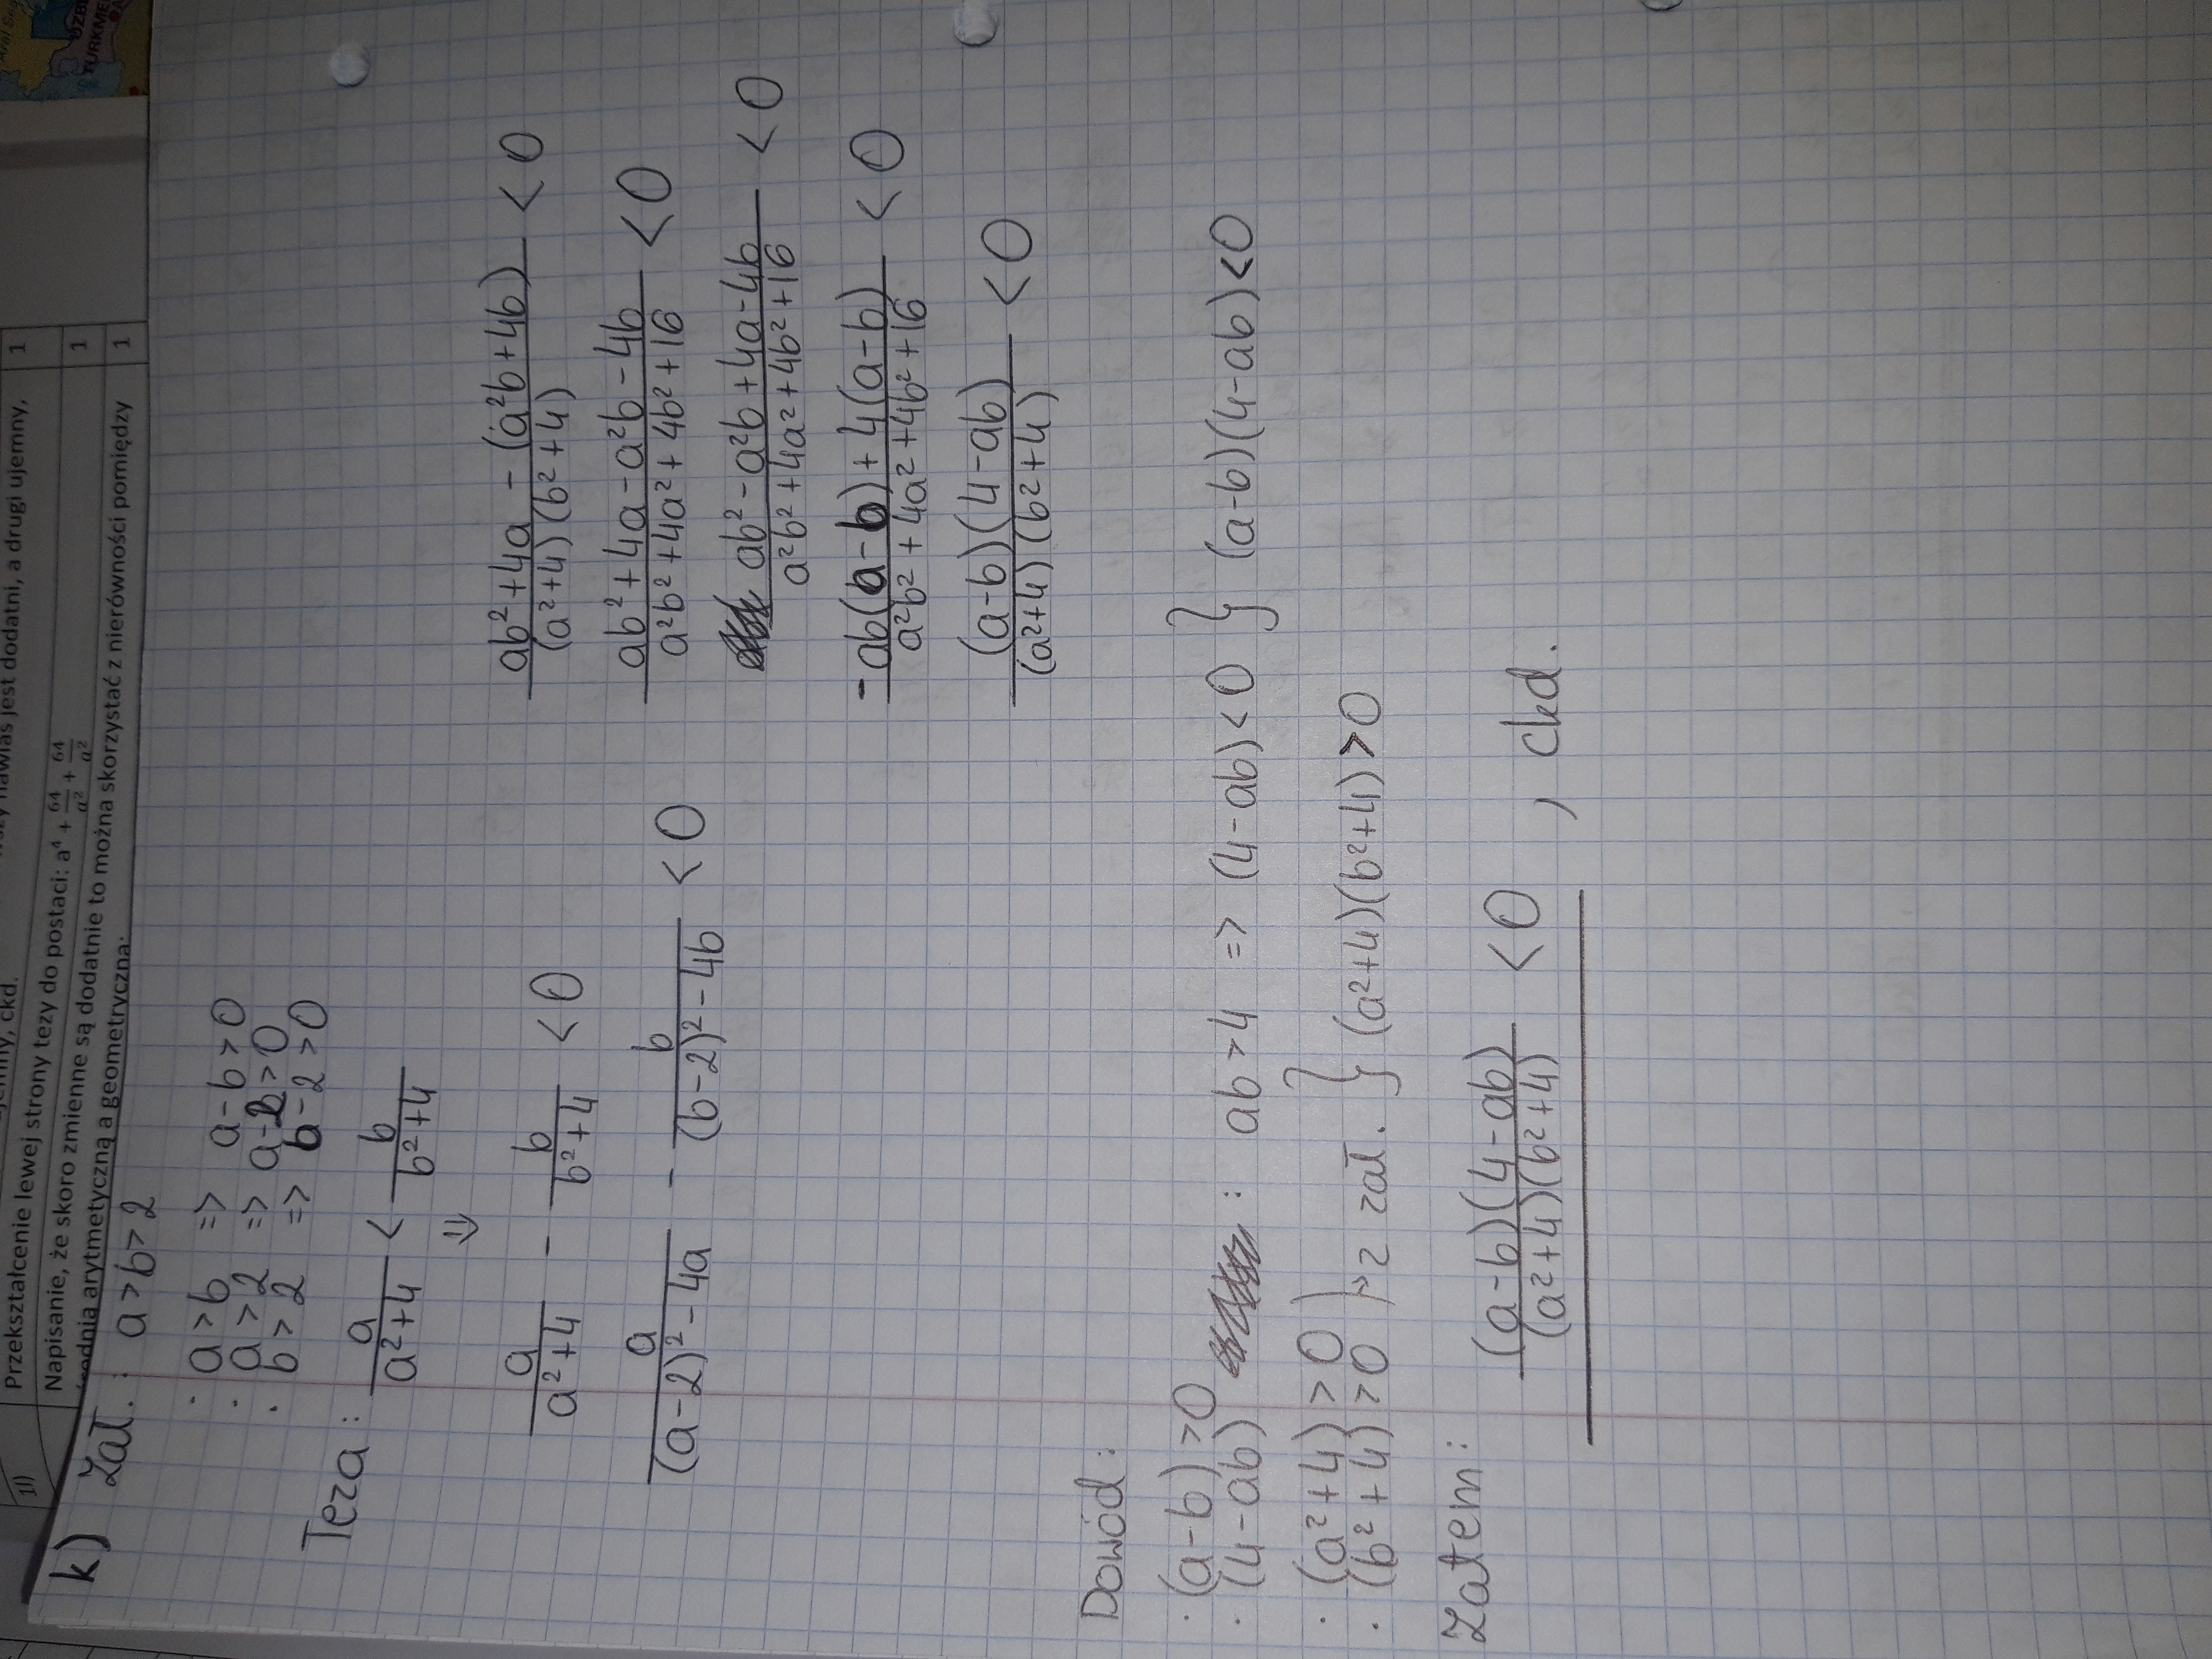 TURKME
Przekształcenie lewej strony tezy do postaci: a⁴ + 64/a² + 64/a² 1
wszy nawias jest dodatni, a drugi ujemny, 1
ckd.
Napisanie, że skoro zmienne są dodatnie to można skorzystać z nierówności pomiędzy 1
średnią arytmetyczną a geometryczną:
k) Zał.: a>b>2
· a>b => a-b>0
· a>2 => a-2>0
· b>2 => b-2>0
Teza: a/(a²+4) < b/(b²+4)
⇓
a/(a²+4) - b/(b²+4) < 0
a/((a-2)²-4a) - b/((b-2)²-4b) < 0
(ab²+4a-(a²b+4b))/((a²+4)(b²+4)) < 0
(ab²+4a-a²b-4b)/(a²b²+4a²+4b²+16) < 0
(ab²-a²b+4a-4b)/(a²b²+4a²+4b²+16) < 0
(-ab(a-b)+4(a-b))/(a²b²+4a²+4b²+16) < 0
((a-b)(4-ab))/((a²+4)(b²+4)) < 0
Dowód:
· (a-b)>0
· (4-ab) : ab>4 => (4-ab)<0 } (a-b)(4-ab)<0
· (a²+4)>0
· (b²+4)>0 z zał. } (a²+4)(b²+4)>0
Zatem: ((a-b)(4-ab))/((a²+4)(b²+4)) < 0 , ckd.